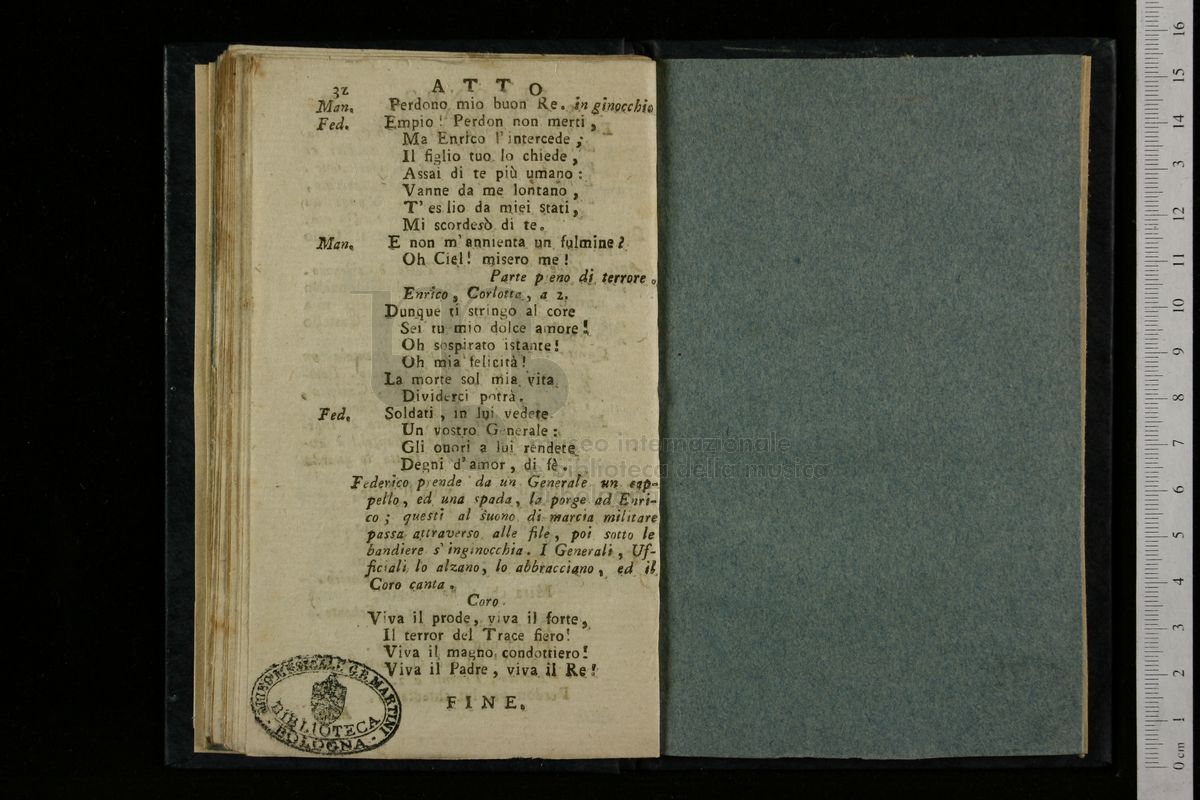 32 ATTO
Man. Perdono mio buon Re. in ginocchio
Fed. Empio! Perdon non merti,
Ma Enrico l'intercede;
Il figlio tuo lo chiede,
Assai di te più umano:
Vanne da me lontano,
T'es lio da miei stati,
Mi scorderò di te.
Man. E non m'annienta un fulmine?
Oh Ciel! misero me!
Parte pieno di terrore.
Enrico, Corlotta, a 2.
Dunque ti stringo al core
Sei tu mio dolce amore!
Oh sospirato istante!
Oh mia felicità!
La morte sol mia vita
Dividerci potrà.
Fed. Soldati, in lui vedete
Un vostro Generale:
Gli onori a lui rendete
Degni d'amor, di fè.
Federico prende da un Generale un cap-
pello, ed una spada, la porge ad Enri-
co; questi al suono di marcia militare
passa attraverso alle file, poi sotto le
bandiere s'inginocchia. I Generali, Uf-
ficiali lo alzano, lo abbracciano, ed il
Coro canta.
Coro.
Viva il prode, viva il forte,
Il terror del Trace fiero!
Viva il magno condottiero!
Viva il Padre, viva il Re!
FINE.
LICEO MUSICALE G.B. MARTINI
BIBLIOTECA
BOLOGNA
museo internazionale
e biblioteca della musica
0 cm 1 2 3 4 5 6 7 8 9 10 11 12 13 14 15 16